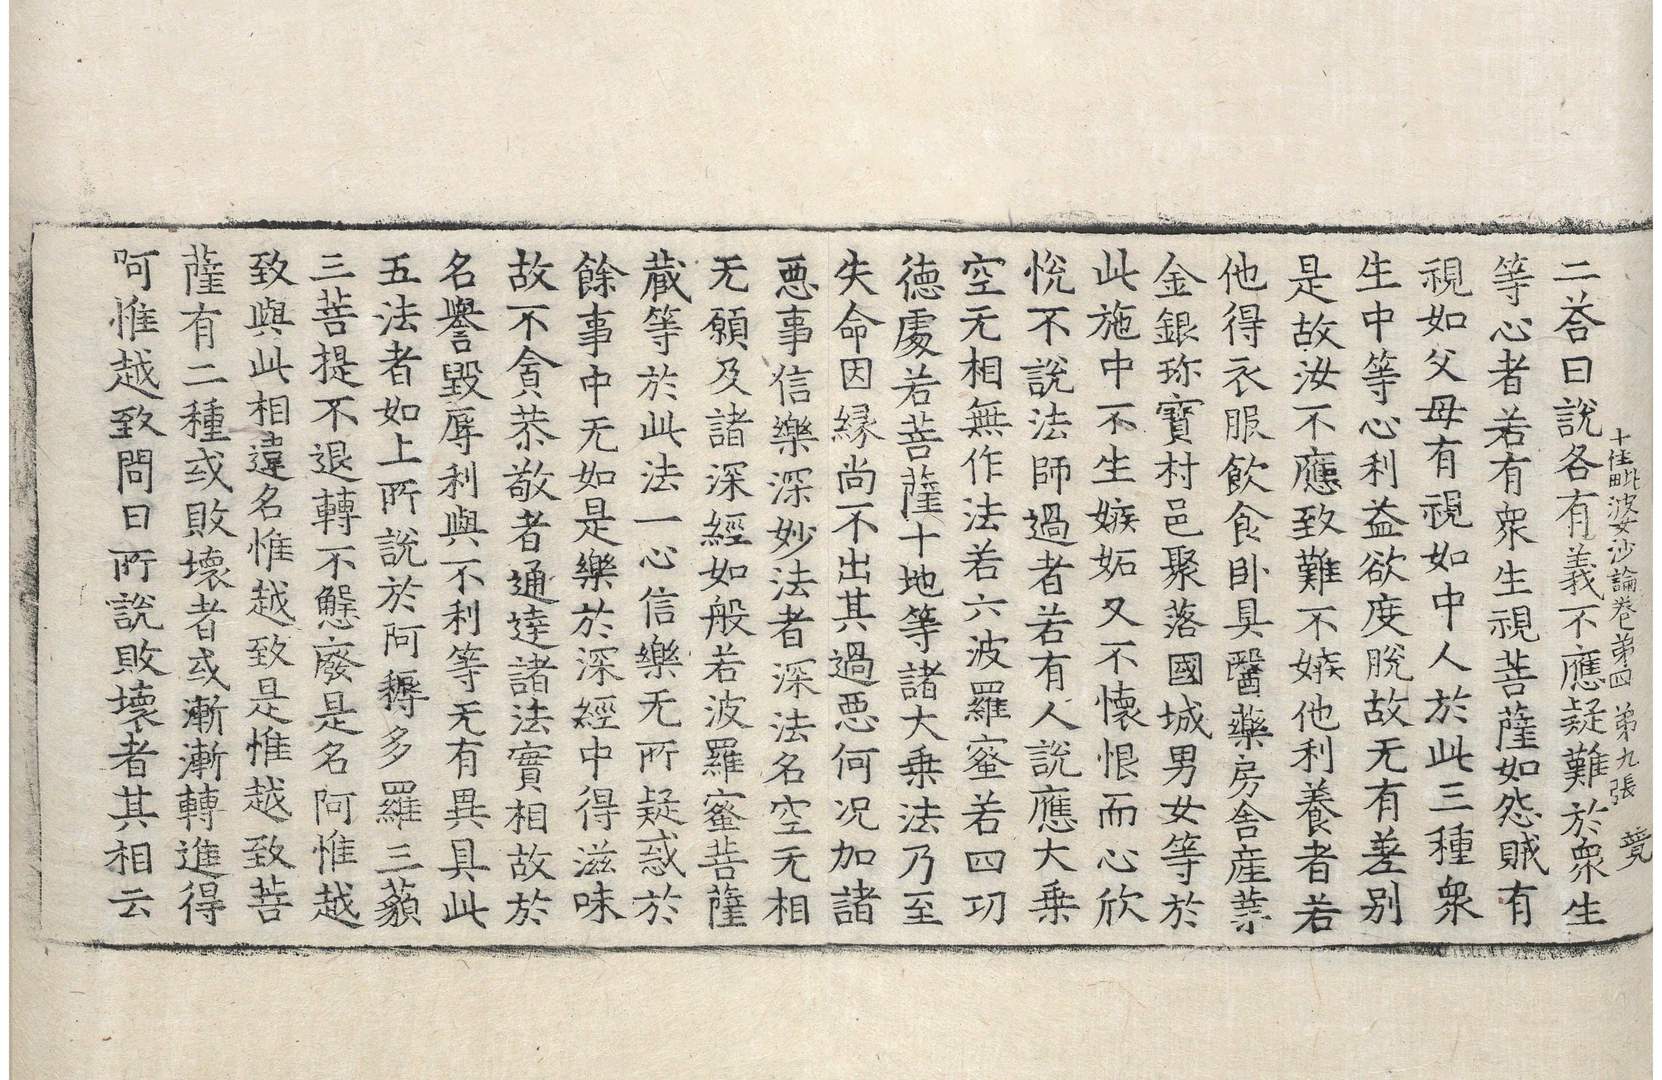 十住毗婆沙論卷第四 第九張 竟
二荅曰說各有義不應疑難於衆生
等心者若有衆生視菩薩如怨賊有
視如父母有視如中人於此三種衆
生中等心利益欲度脫故无有差别
是故汝不應致難不嫉他利養者若
他得衣服飲食卧具醫藥房舍産業
金銀珎寶村邑聚落國城男女等於
此施中不生嫉妬又不懷恨而心欣
悅不說法師過者若有人說應大乗
空无相無作法若六波羅蜜若四功
德處若菩薩十地等諸大乗法乃至
失命因縁尚不出其過悪何况加諸
悪事信樂深妙法者深法名空无相
无願及諸深經如般若波羅蜜菩薩
蔵等於此法一心信樂无所疑惑於
餘事中无如是樂於深經中得滋味
故不貪恭敬者通達諸法實相故於
名譽毀辱利與不利等无有異具此
五法者如上所說於阿耨多羅三藐
三菩提不退轉不懈廢是名阿惟越
致與此相違名惟越致是惟越致菩
薩有二種或敗壞者或漸漸轉進得
阿惟越致問曰所說敗壞者其相云